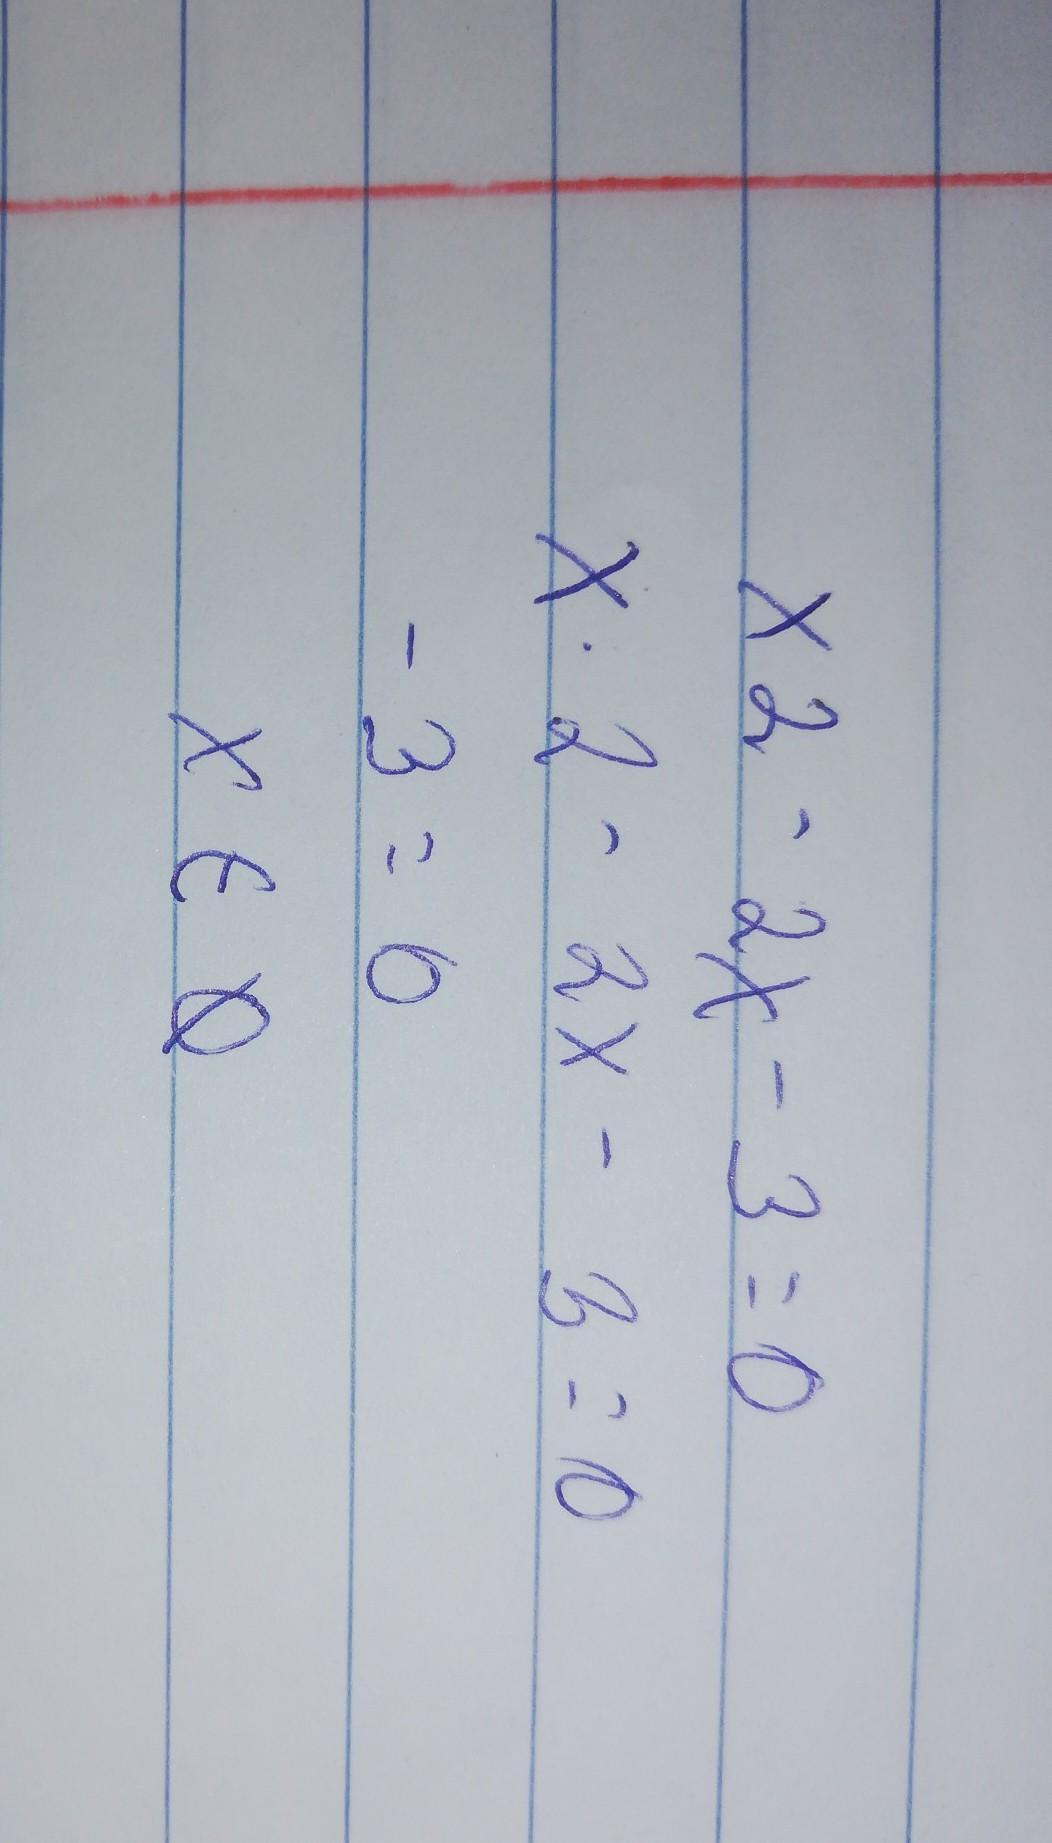 x2-2x-3=0
x·2-2x-3=0
-3=0
x∈∅